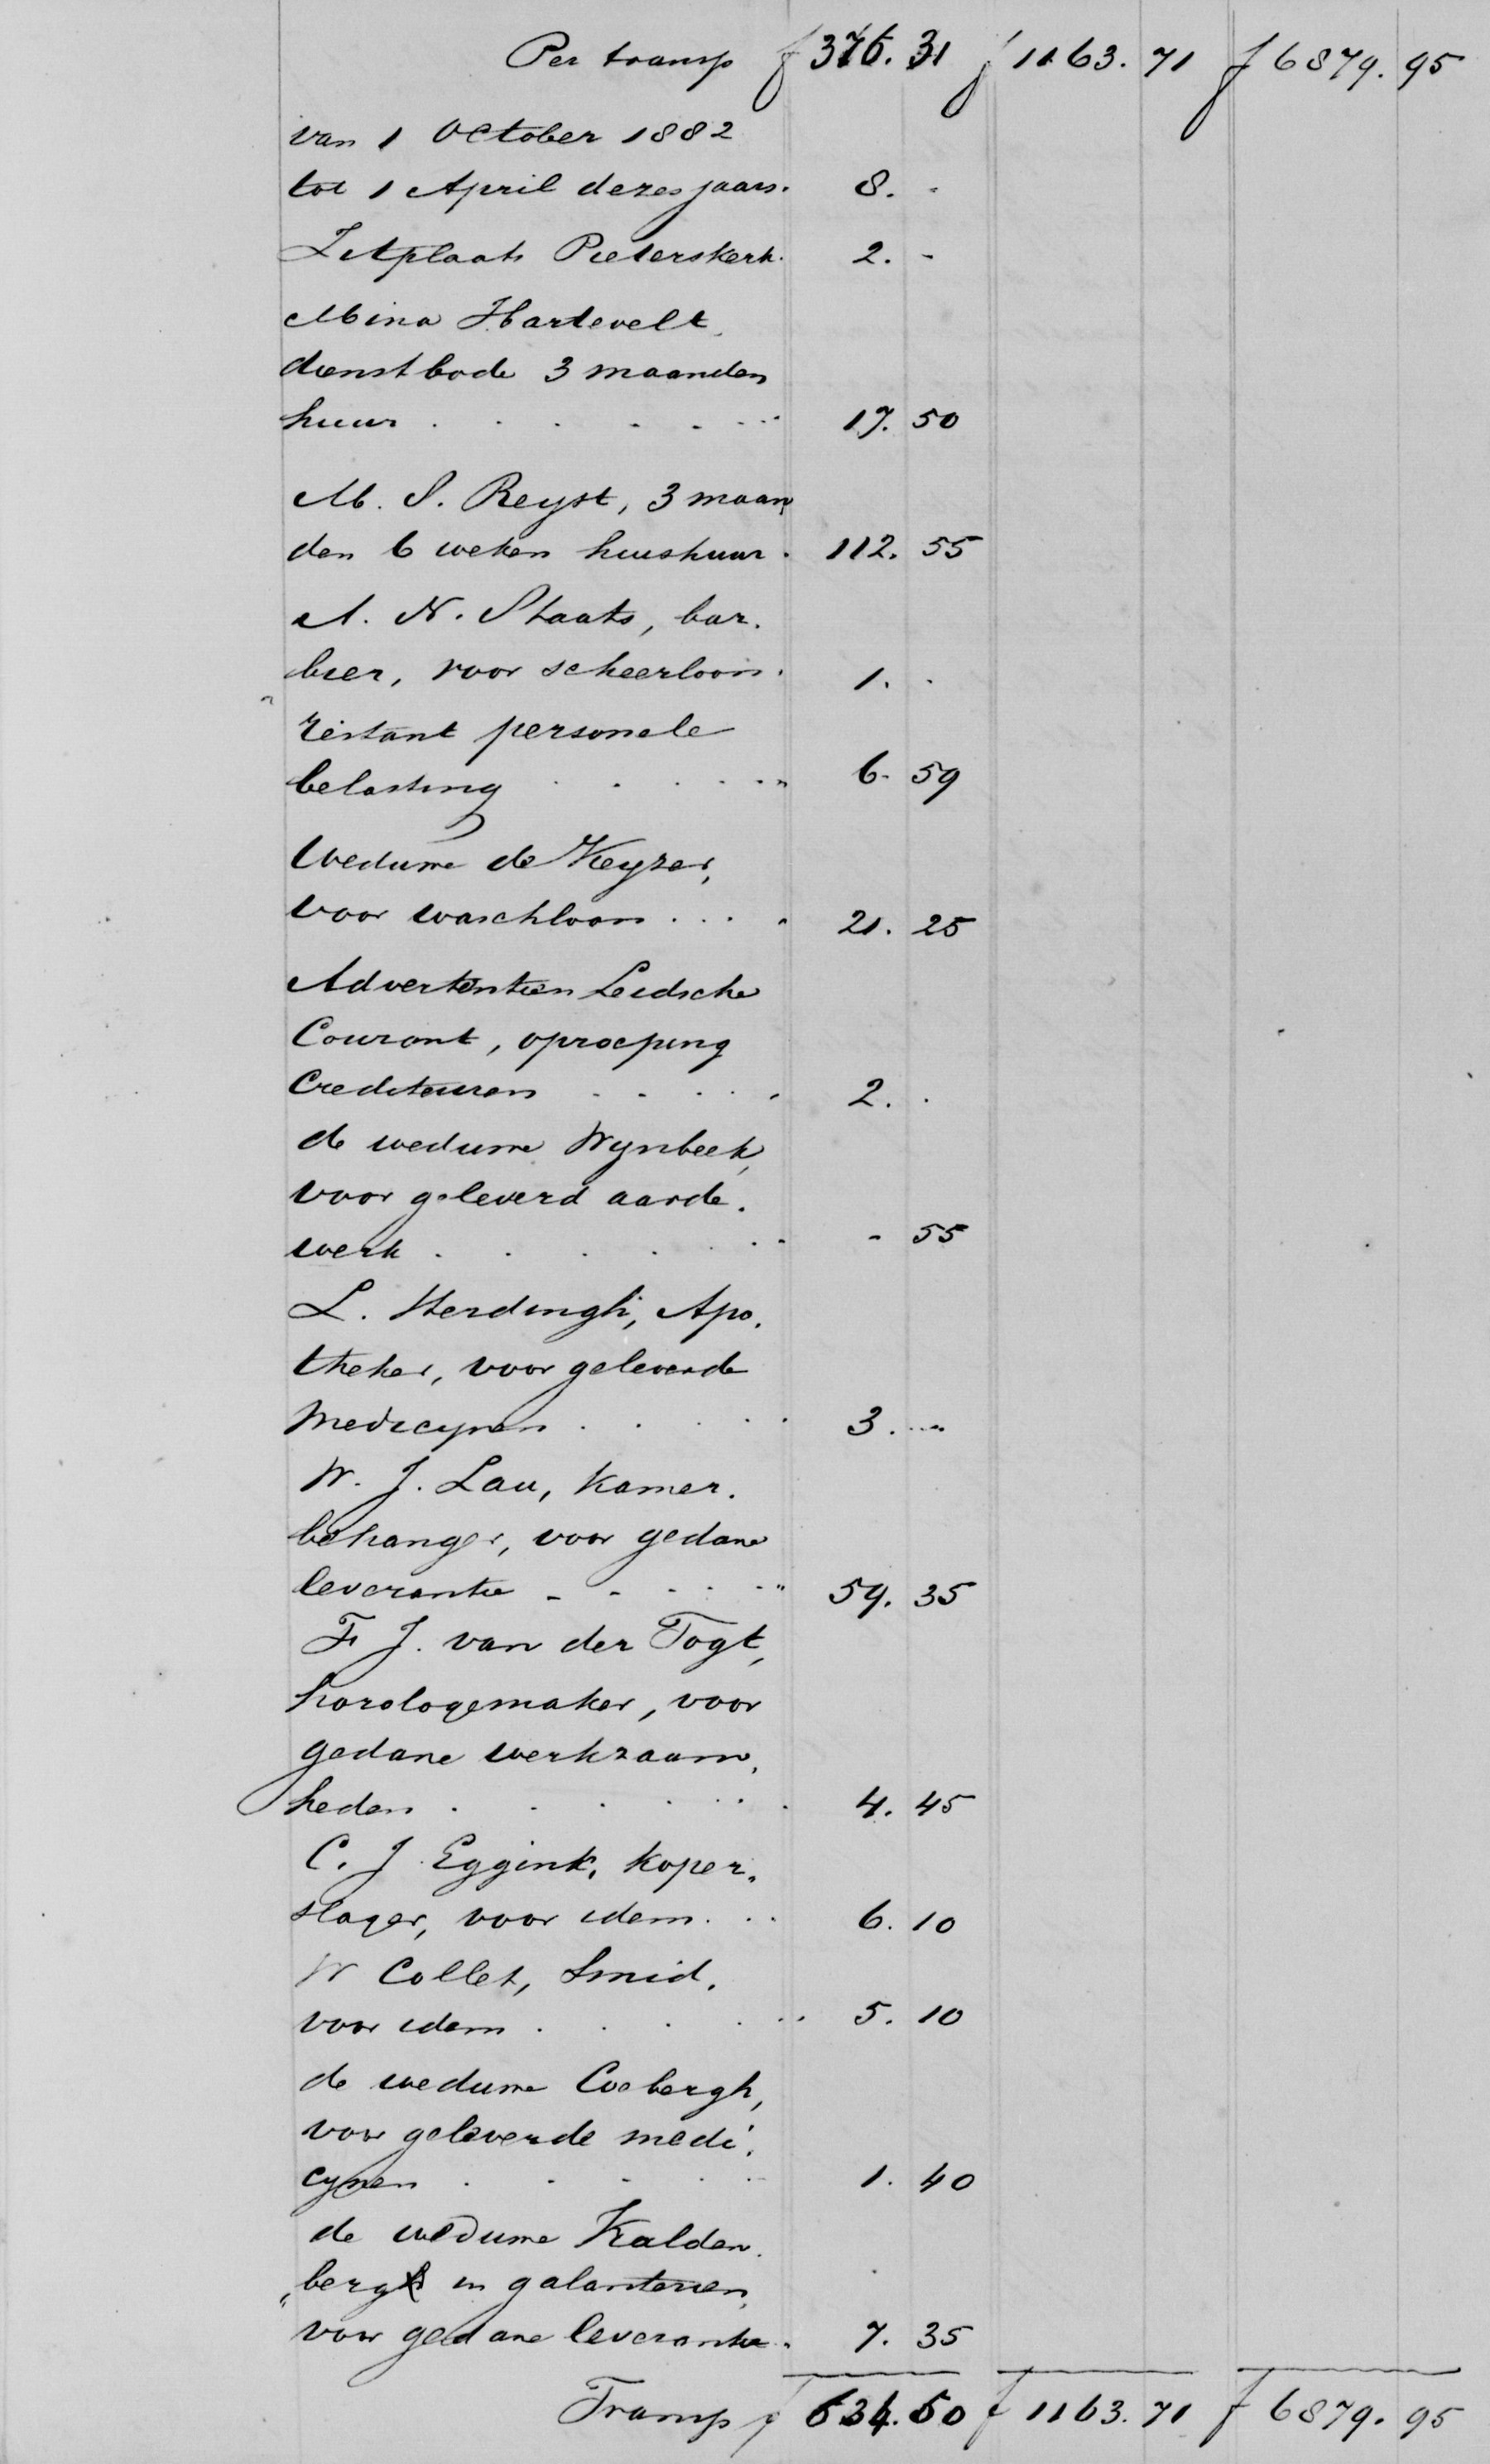 Per transp f 376. 31 f 1163. 71 f 6879. 95
van 1 October 1882
tot 1 April dezes jaars. 8. -
Zitplaats Pieterskerk. 2. -
Mina Hartevelt,
dienstbode 3 maanden
huur . . . . . . 17. 50
M. S. Reyst, 3 maan
den 6 weken huishuur . 112. 55
A. N. Staats, bar-
bier, voor scheerloon. 1. .
restant personele
belasting . . . . . 6. 59
Weduwe de Keyzer,
voor waschloon . . . . 21. 25
Advertentien Leidsche
Courant, oproeping
Crediteuren . . . . . 2. .
de weduwe Wynbeek,
voor geleverd aarde-
werk . . . . . . - 55
L. Herdingh, Apo-
theker, voor geleverde
Medicynen . . . . . 3. ...
W. J. Lau, kamer-
behanger, voor gedane
leverantie - - . . . 59. 35
F J. van der Togt,
horologemaker, voor
gedane werkzaam-
heden . . . . . . 4. 45
C. J. Eggink, koper-
slager, voor idem . . . 6. 10
W Collet, Smid,
voor idem . . . . . 5. 10
de weduwe Coebergh,
voor geleverde medi-
cynen . . . . . 1. 40
de weduwe Kalden-
bergh in galanterien,
voor gedane leverantie . 7. 35
Transp f 634. 50 f 1163. 71 f 6879. 95